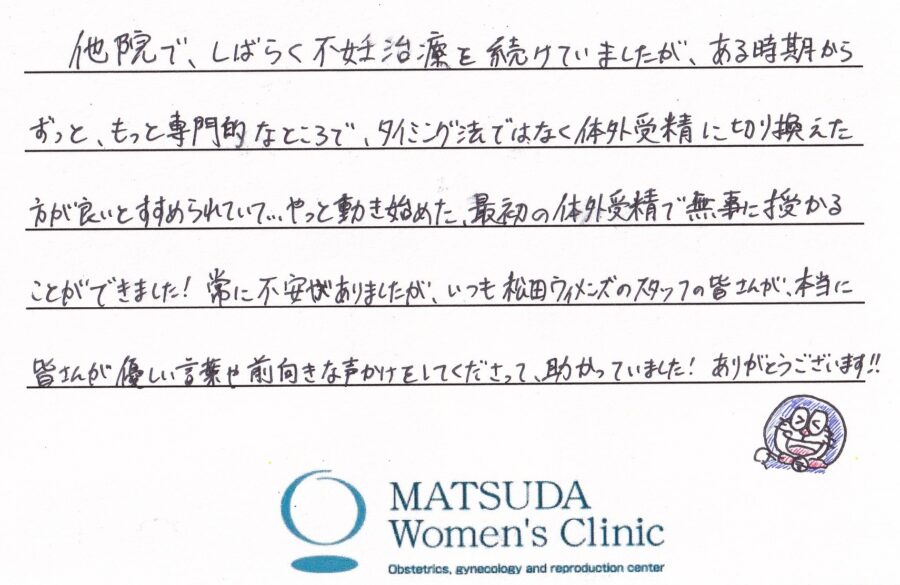 他院で、しばらく不妊治療を続けていましたが、ある時期から
ずっと、もっと専門的なところで、タイミング法ではなく体外受精に切り換えた
方が良いとすすめられていて…やっと動き始めた、最初の体外受精で無事に授かる
ことができました！常に不安がありましたが、いつも松田ウィメンズのスタッフの皆さんが、本当に
皆さんが優しい言葉や前向きな声かけをしてくださって、助かっていました！ありがとうございます!!
MATSUDA
Women's Clinic
Obstetrics, gynecology and reproduction center